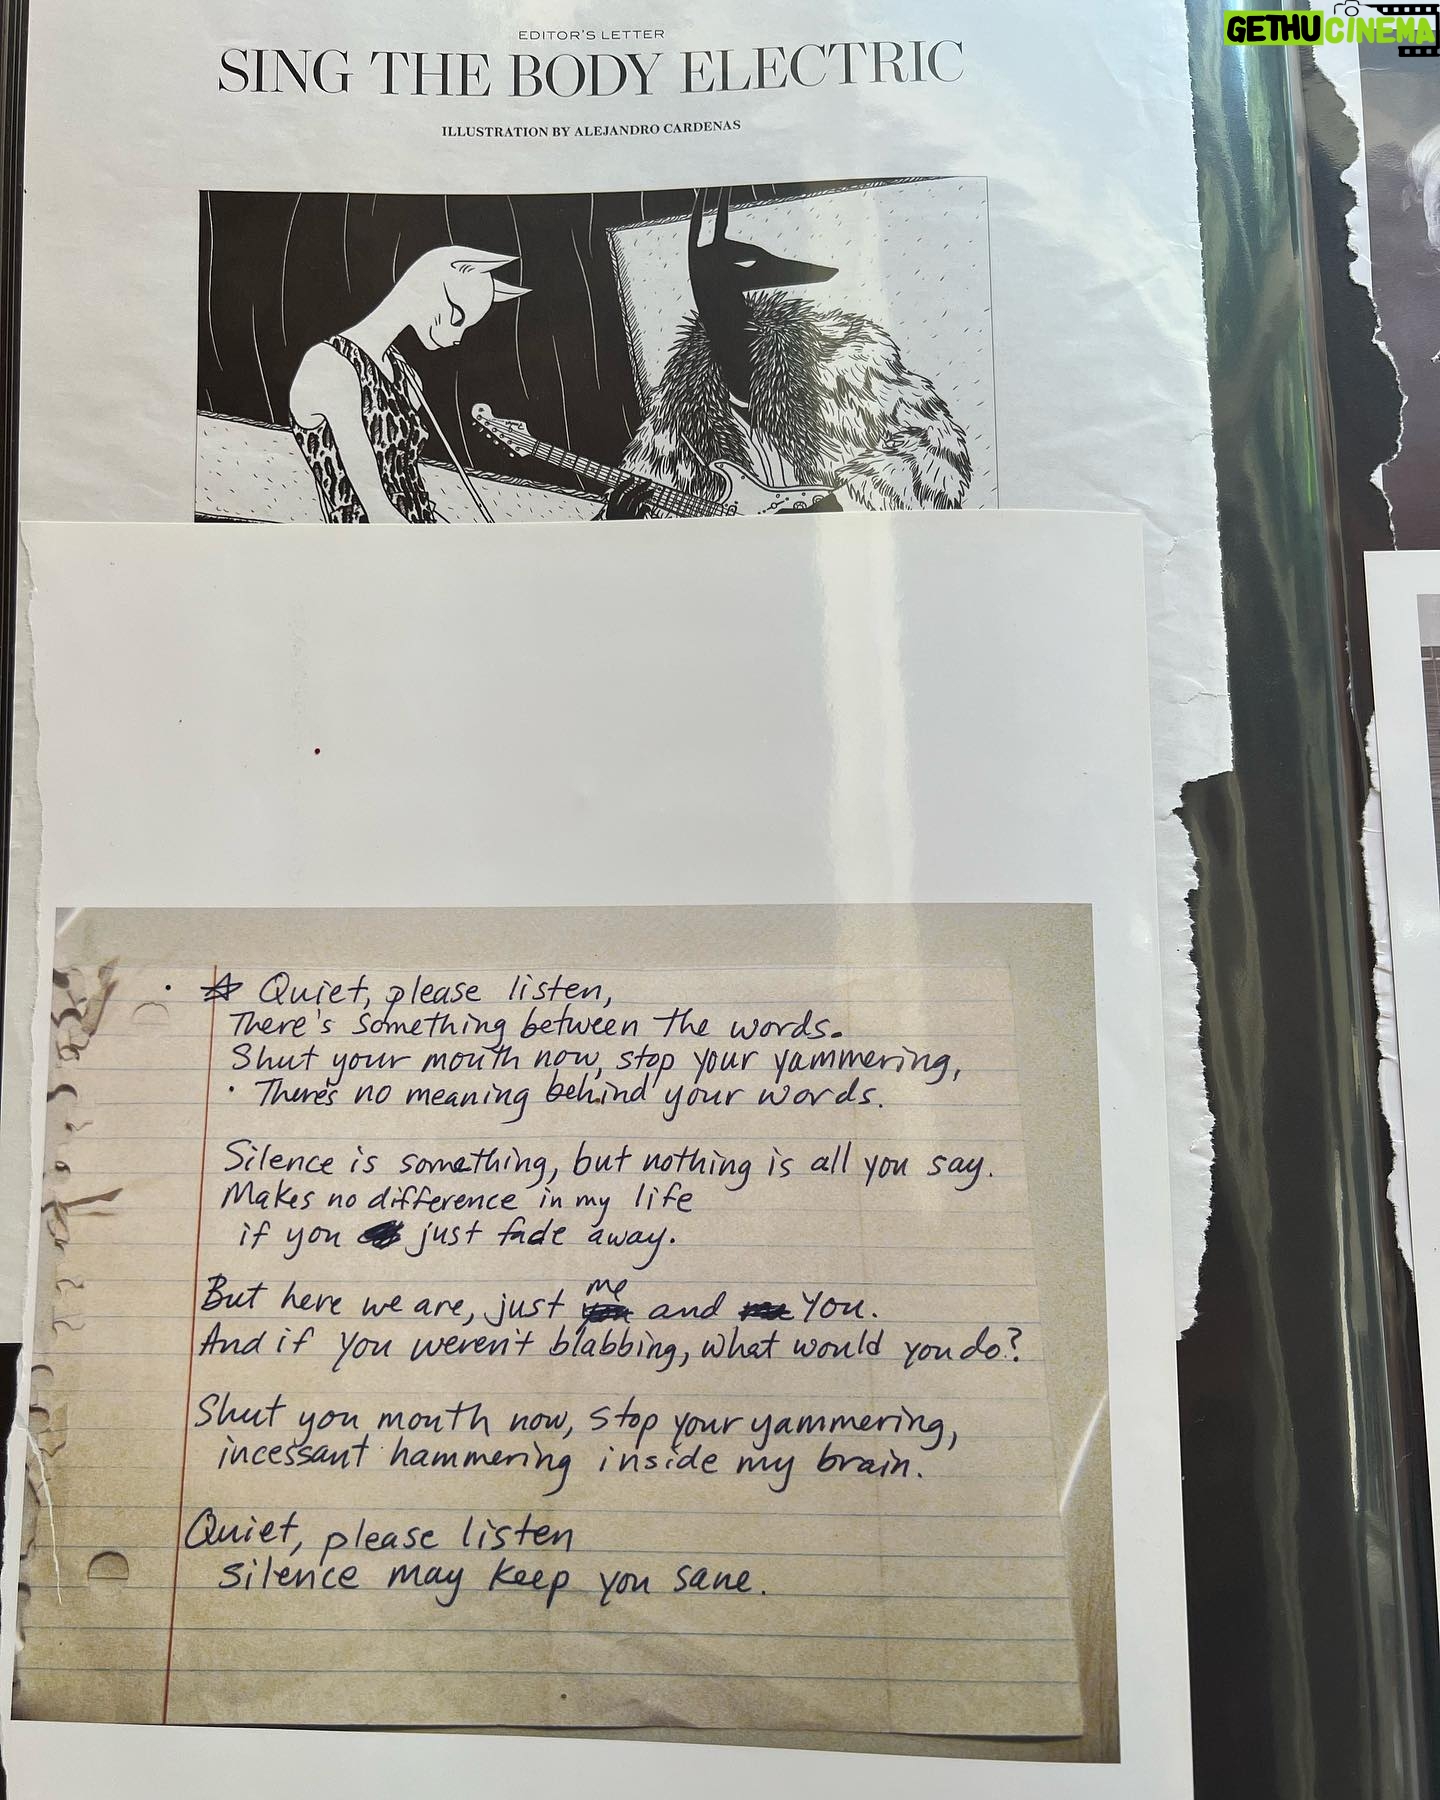 GETHUCINEMA
EDITOR'S LETTER
SING THE BODY ELECTRIC
ILLUSTRATION BY ALEJANDRO CARDENAS
Quiet, please listen,
There's something between the words.
Shut your mouth now, stop your yammering,
There's no meaning behind your words.
Silence is something, but nothing is all you say.
Makes no difference in my life
if you just fade away.
But here we are, just me and you.
And if you weren't blabbing, what would you do?
Shut you mouth now, stop your yammering,
incessant hammering inside my brain.
Quiet, please listen
silence may keep you sane.